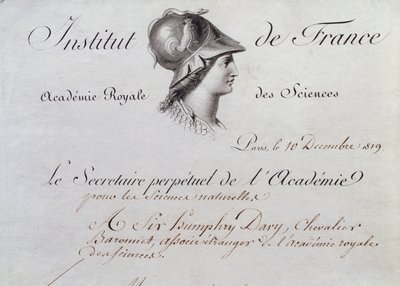 Institut de France
Académie Royale des Sciences
Paris, le 10 Decembre 1819
Le Secretaire perpétuel de l'Académie
pour les Sciences naturelles
A Sir humphry Davy, Chevalier
Baronnet, associé étranger de l'académie royale
des sciences.